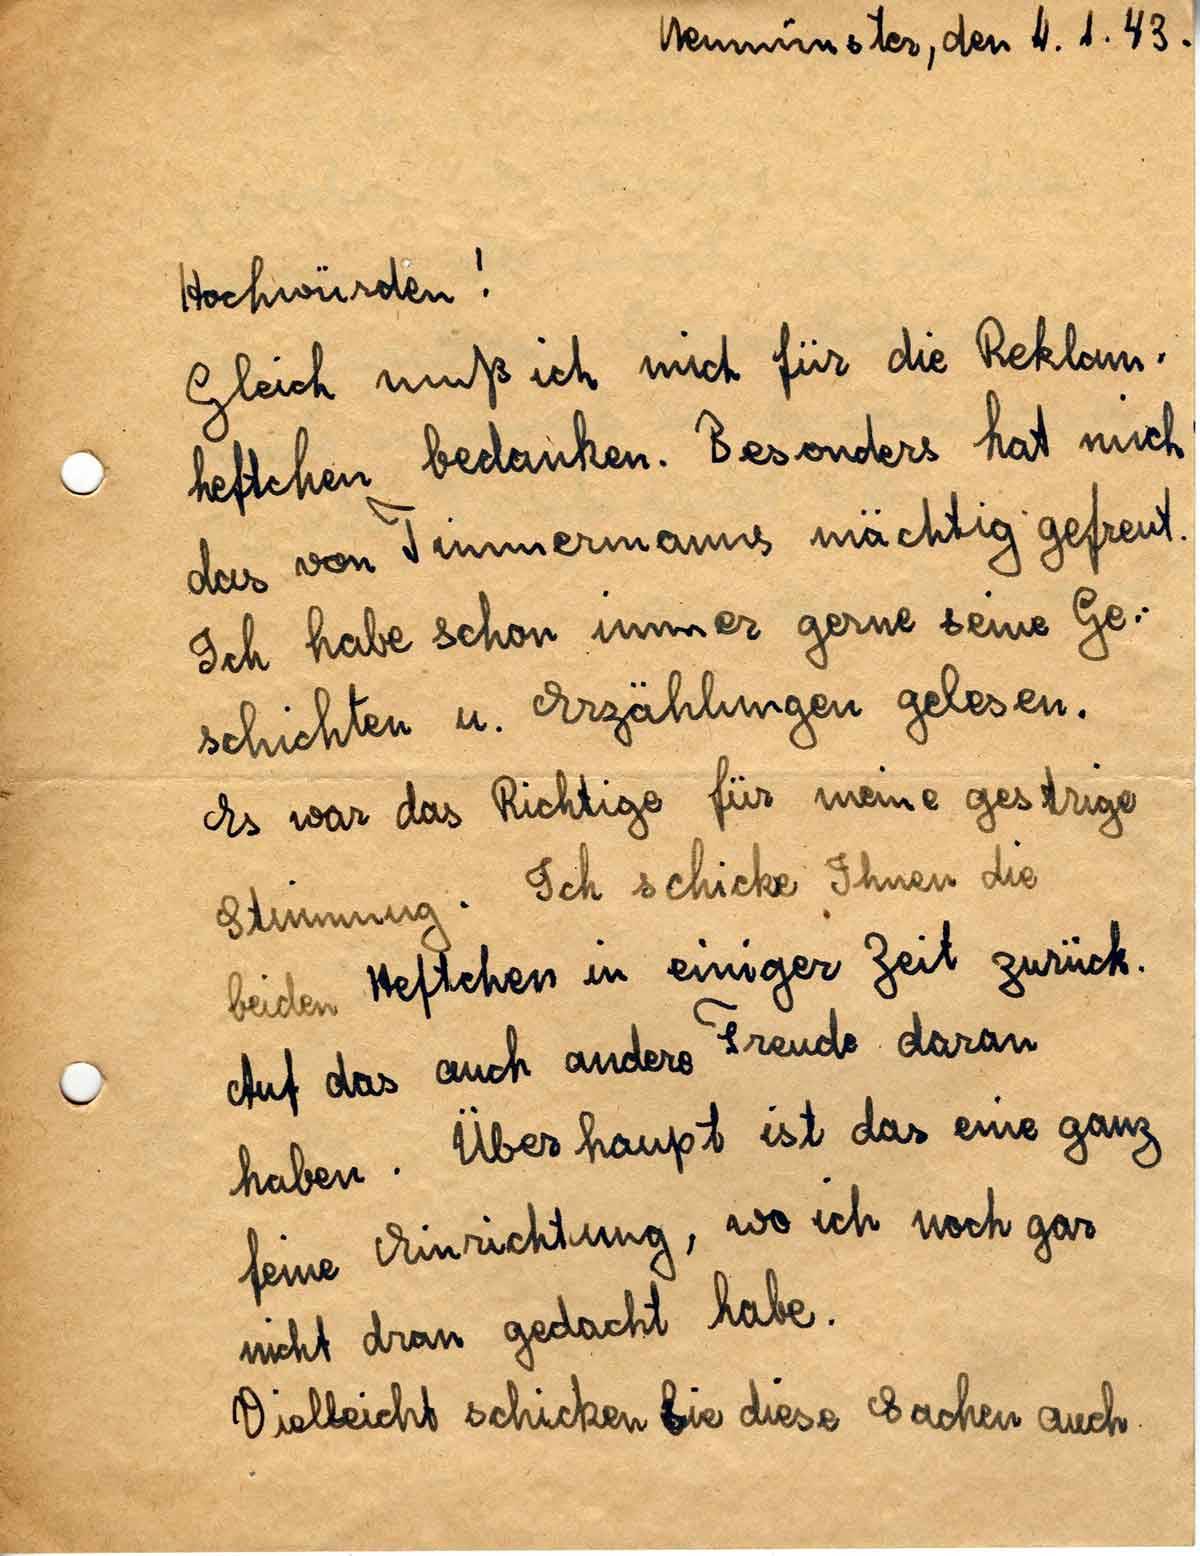 Neumünster, den 4. 1. 43.
Hochwürden!
Gleich muß ich mich für die Reklam-
heftchen bedanken. Besonders hat mich
das von Timmermanns mächtig gefreut.
Ich habe schon immer gerne seine Ge-
schichten u. Erzählungen gelesen.
Es war das Richtige für meine gestrige
Stimmung. Ich schicke Ihnen die
beiden Heftchen in einiger Zeit zurück.
Auf das auch andere Freude daran
haben. Überhaupt ist das eine ganz
feine Einrichtung, wo ich noch gar
nicht dran gedacht habe.
Vielleicht schicken Sie diese Sachen auch